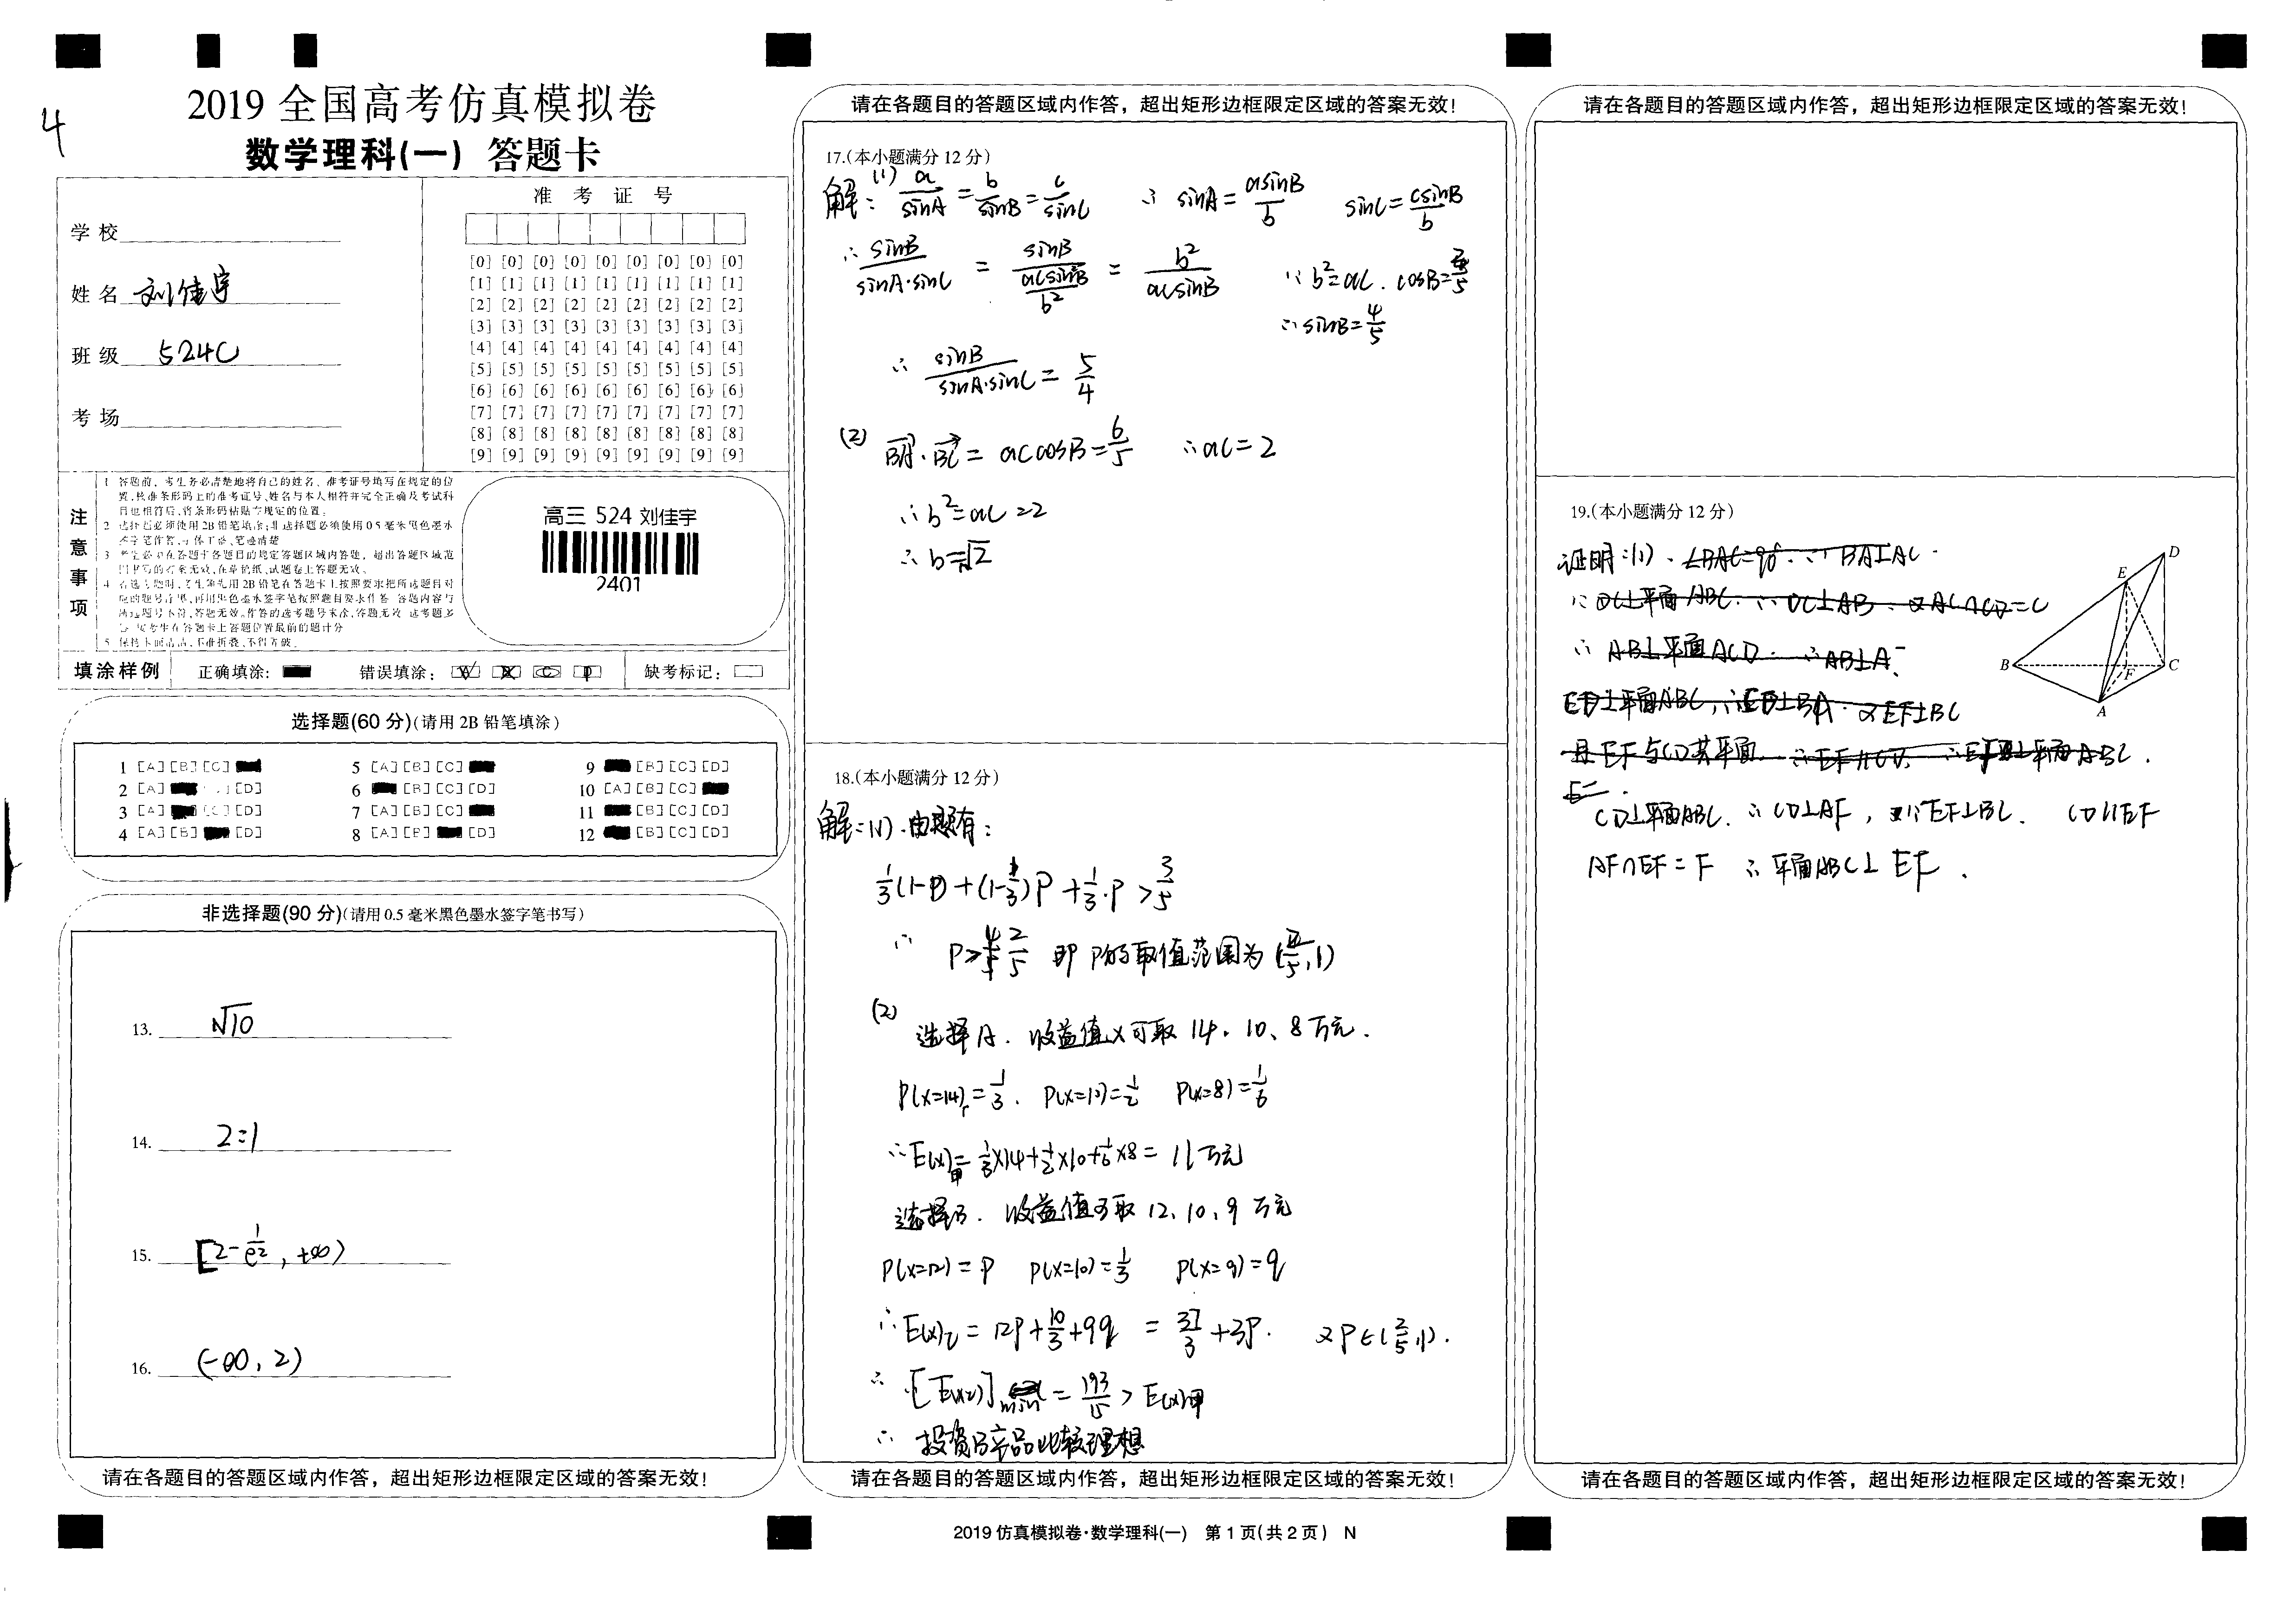 4
2019 全国高考仿真模拟卷
数学理科(一) 答题卡
学校
姓名 刘佳宇
班级 524C
考场
准考证号
[0] [0] [0] [0] [0] [0] [0] [0] [0]
[1] [1] [1] [1] [1] [1] [1] [1] [1]
[2] [2] [2] [2] [2] [2] [2] [2] [2]
[3] [3] [3] [3] [3] [3] [3] [3] [3]
[4] [4] [4] [4] [4] [4] [4] [4] [4]
[5] [5] [5] [5] [5] [5] [5] [5] [5]
[6] [6] [6] [6] [6] [6] [6] [6] [6]
[7] [7] [7] [7] [7] [7] [7] [7] [7]
[8] [8] [8] [8] [8] [8] [8] [8] [8]
[9] [9] [9] [9] [9] [9] [9] [9] [9]
注意事项
1 答题前，考生务必清楚地将自己的姓名、准考证号填写在规定的位
置,核准条形码上的准考证号、姓名与本人相符并完全正确及考试科
目也相符后,将条形码粘贴在规定的位置。
2 选择题必须使用2B铅笔填涂;非选择题必须使用0.5毫米黑色墨水
签字笔作答,字体工整、笔迹清楚
3 考生必须在答题卡各题目的规定答题区域内答题，超出答题区域范
围书写的答案无效,在草稿纸、试题卷上答题无效。
高三 524 刘佳宇
2401
填涂样例 正确填涂: 错误填涂: 缺考标记:
选择题(60 分)(请用 2B 铅笔填涂)
1 [A] [B] [C]
5 [A] [B] [C]
9 [B] [C] [D]
2 [A] [D]
6 [B] [C] [D]
10 [A] [B] [C]
3 [A] [C] [D]
7 [A] [B] [C]
11 [B] [C] [D]
4 [A] [B] [D]
8 [A] [B] [D]
12 [B] [C] [D]
非选择题(90 分)(请用 0.5 毫米黑色墨水签字笔书写)
13. √10
14. 2:1
15. [2-1/e², +∞)
16. (-∞, 2)
请在各题目的答题区域内作答，超出矩形边框限定区域的答案无效!
请在各题目的答题区域内作答，超出矩形边框限定区域的答案无效!
17.(本小题满分 12 分)
解: (1) a/sinA = b/sinB = c/sinC ∴ sinA = asinB/b sinC = csinB/b
∴ sinB/(sinA·sinC) = sinB/(acsin²B/b²) = b²/(acsinB) ∵ b²=ac. cosB=3/5
∴ sinB=4/5
∴ sinB/(sinA·sinC) = 5/4
(2) BA·BC = accosB = 6/5 ∴ ac=2
∴ b²=ac=2
∴ b=√2
18.(本小题满分 12 分)
解:(1).由题有:
1/3(1-p)+(1-1/3)p+1/3·p>3/5
∴ p>2/5 即 p的取值范围为(2/5,1)
(2)
选择A. 收益值X可取 14. 10、8万元.
P(X=14)=1/3. P(X=10)=1/2 P(X=8)=1/6
∴E(X)甲=1/3×14+1/2×10+1/6×8=11万元
选择B. 收益值可取 12、10、9 万元
P(X=12)=p P(X=10)=1/3 P(X=9)=q
∴E(X)乙=12p+10/3+9q = 37/3... +3p. 又P∈(2/5,1).
∴ [E(X乙)]min = 193/15 > E(X)甲
∴ 投资B产品比较理想
请在各题目的答题区域内作答，超出矩形边框限定区域的答案无效!
2019 仿真模拟卷·数学理科(一) 第 1 页(共 2 页) N
请在各题目的答题区域内作答，超出矩形边框限定区域的答案无效!
19.(本小题满分 12 分)
证明:(1). ∠BAC=90° ∴ BA⊥AC.
∵ DC⊥平面ABC. ∴ DC⊥AB. 又AC∩CD=C
∴ AB⊥平面ACD.
又EF⊥BC
且EF与CD共平面. ∴EF∥CD, ∴EF⊥平面ABC.
CD⊥平面ABC. ∴ CD⊥AF, 又∵EF⊥BC. CD∥EF
AF∩EF=F ∴ 平面ABC⊥EF.
D
E
B
F
C
A
请在各题目的答题区域内作答，超出矩形边框限定区域的答案无效!